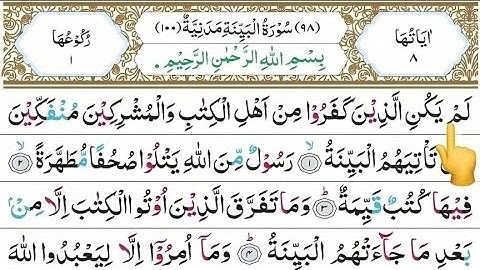 اٰیَاتُهَا ٨
(٩٨) سُوْرَةُ الْبَیِّنَةِ مَدَنِیَّةٌ (١٠٠)
رُكُوْعُهَا ١
بِسْمِ اللّٰهِ الرَّحْمٰنِ الرَّحِیْمِ
لَمْ یَكُنِ الَّذِیْنَ كَفَرُوْا مِنْ اَهْلِ الْكِتٰبِ وَالْمُشْرِكِیْنَ مُنْفَكِّیْنَ
تَاْتِیَهُمُ الْبَیِّنَةُ ۙ﴿١﴾ رَسُوْلٌ مِّنَ اللّٰهِ یَتْلُوْا صُحُفًا مُّطَهَّرَةً ۙ﴿٢﴾
فِیْهَا كُتُبٌ قَیِّمَةٌ ؕ﴿٣﴾ وَمَا تَفَرَّقَ الَّذِیْنَ اُوْتُوا الْكِتٰبَ اِلَّا مِنْۢ
بَعْدِ مَا جَآءَتْهُمُ الْبَیِّنَةُ ؕ﴿٤﴾ وَمَاۤ اُمِرُوْۤا اِلَّا لِیَعْبُدُوا اللّٰهَ